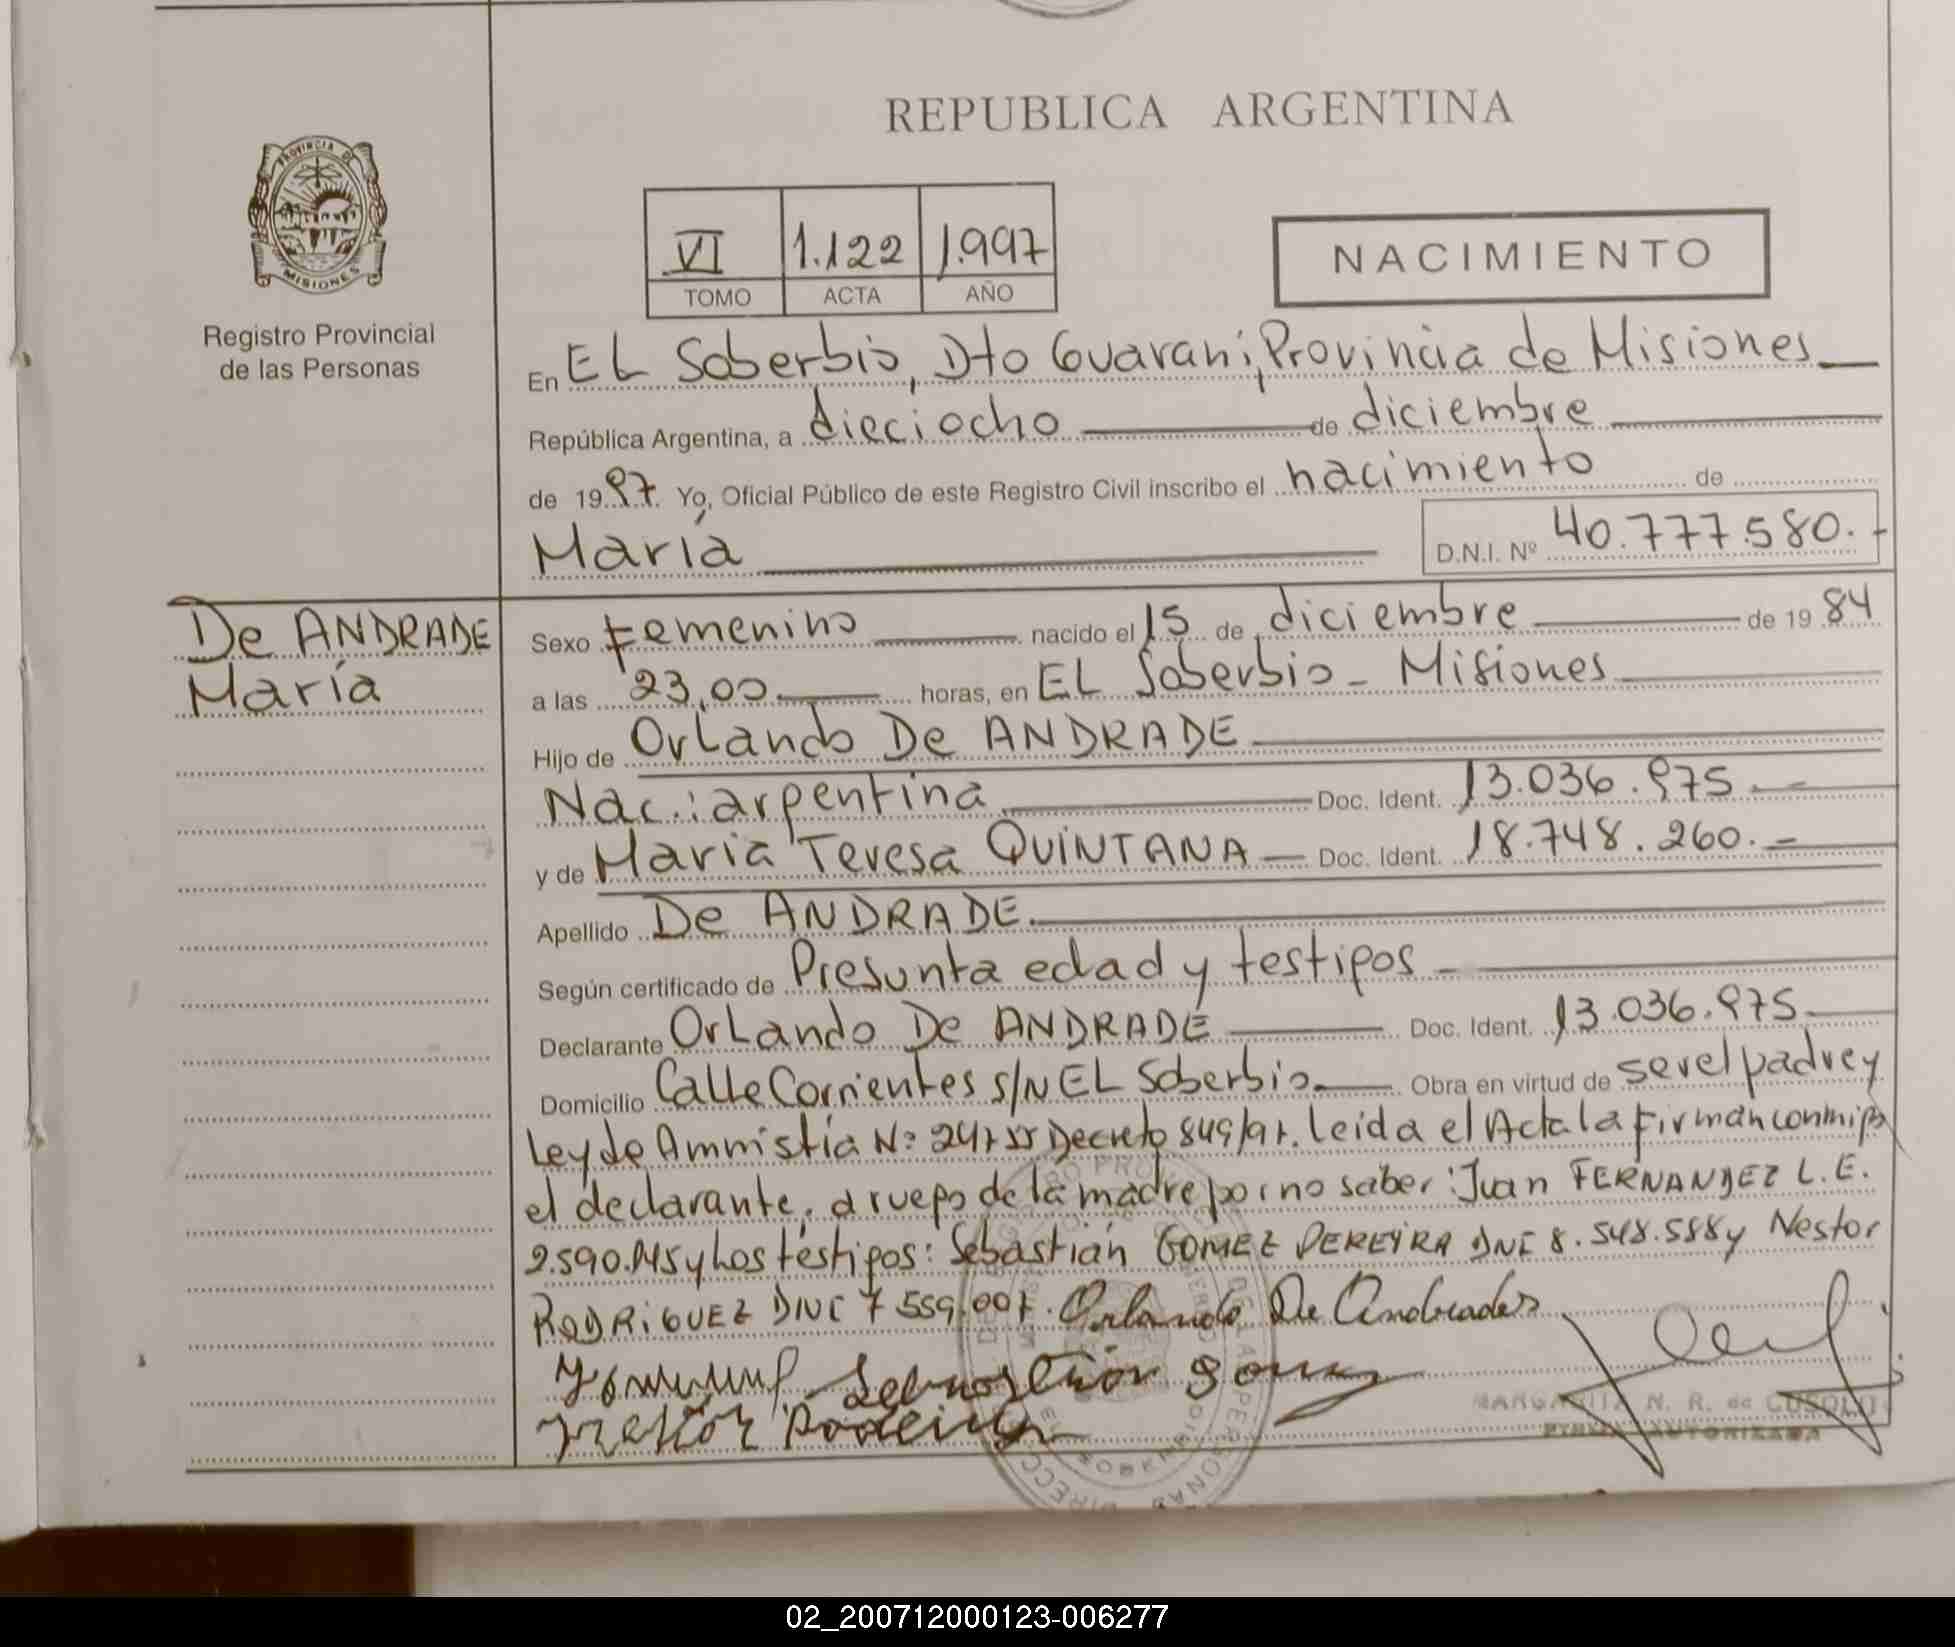 REPUBLICA ARGENTINA
PROVINCIA DE
MISIONES
Registro Provincial
de las Personas
VI 1.122 1.997
TOMO ACTA AÑO
NACIMIENTO
En EL Soberbio, Dto Guaraní, Provincia de Misiones
República Argentina, a dieciocho de diciembre
de 1997. Yo, Oficial Público de este Registro Civil inscribo el nacimiento de
María D.N.I. Nº 40.777.580.-
De ANDRADE
María
Sexo Femenino nacido el 15 de diciembre de 1984
a las 23,00 horas, en EL Soberbio - Misiones
Hijo de Orlando De ANDRADE
Nac.: argentina Doc. Ident. 13.036.975
y de María Teresa QUINTANA Doc. Ident. 18.748.260.-
Apellido De ANDRADE
Según certificado de Presunta edad y testigos
Declarante Orlando De ANDRADE Doc. Ident. 13.036.975
Domicilio Calle Corrientes S/N EL Soberbio Obra en virtud de ser el padre y
Ley de Amnistía Nº Decreto 849/97. Leída el Acta la firman conmigo
el declarante, a ruego de la madre por no saber: Juan FERNANDEZ L.E.
2.590. y Los testigos: Sebastián GOMEZ PEREYRA DNI 8.548.588 y Nestor
RODRIGUEZ 7 559.007. Orlando De Andrade
Sebastián
MARGARITA N. R. de CUSOLITO
FIRMA AUTORIZADA
02_200712000123-006277